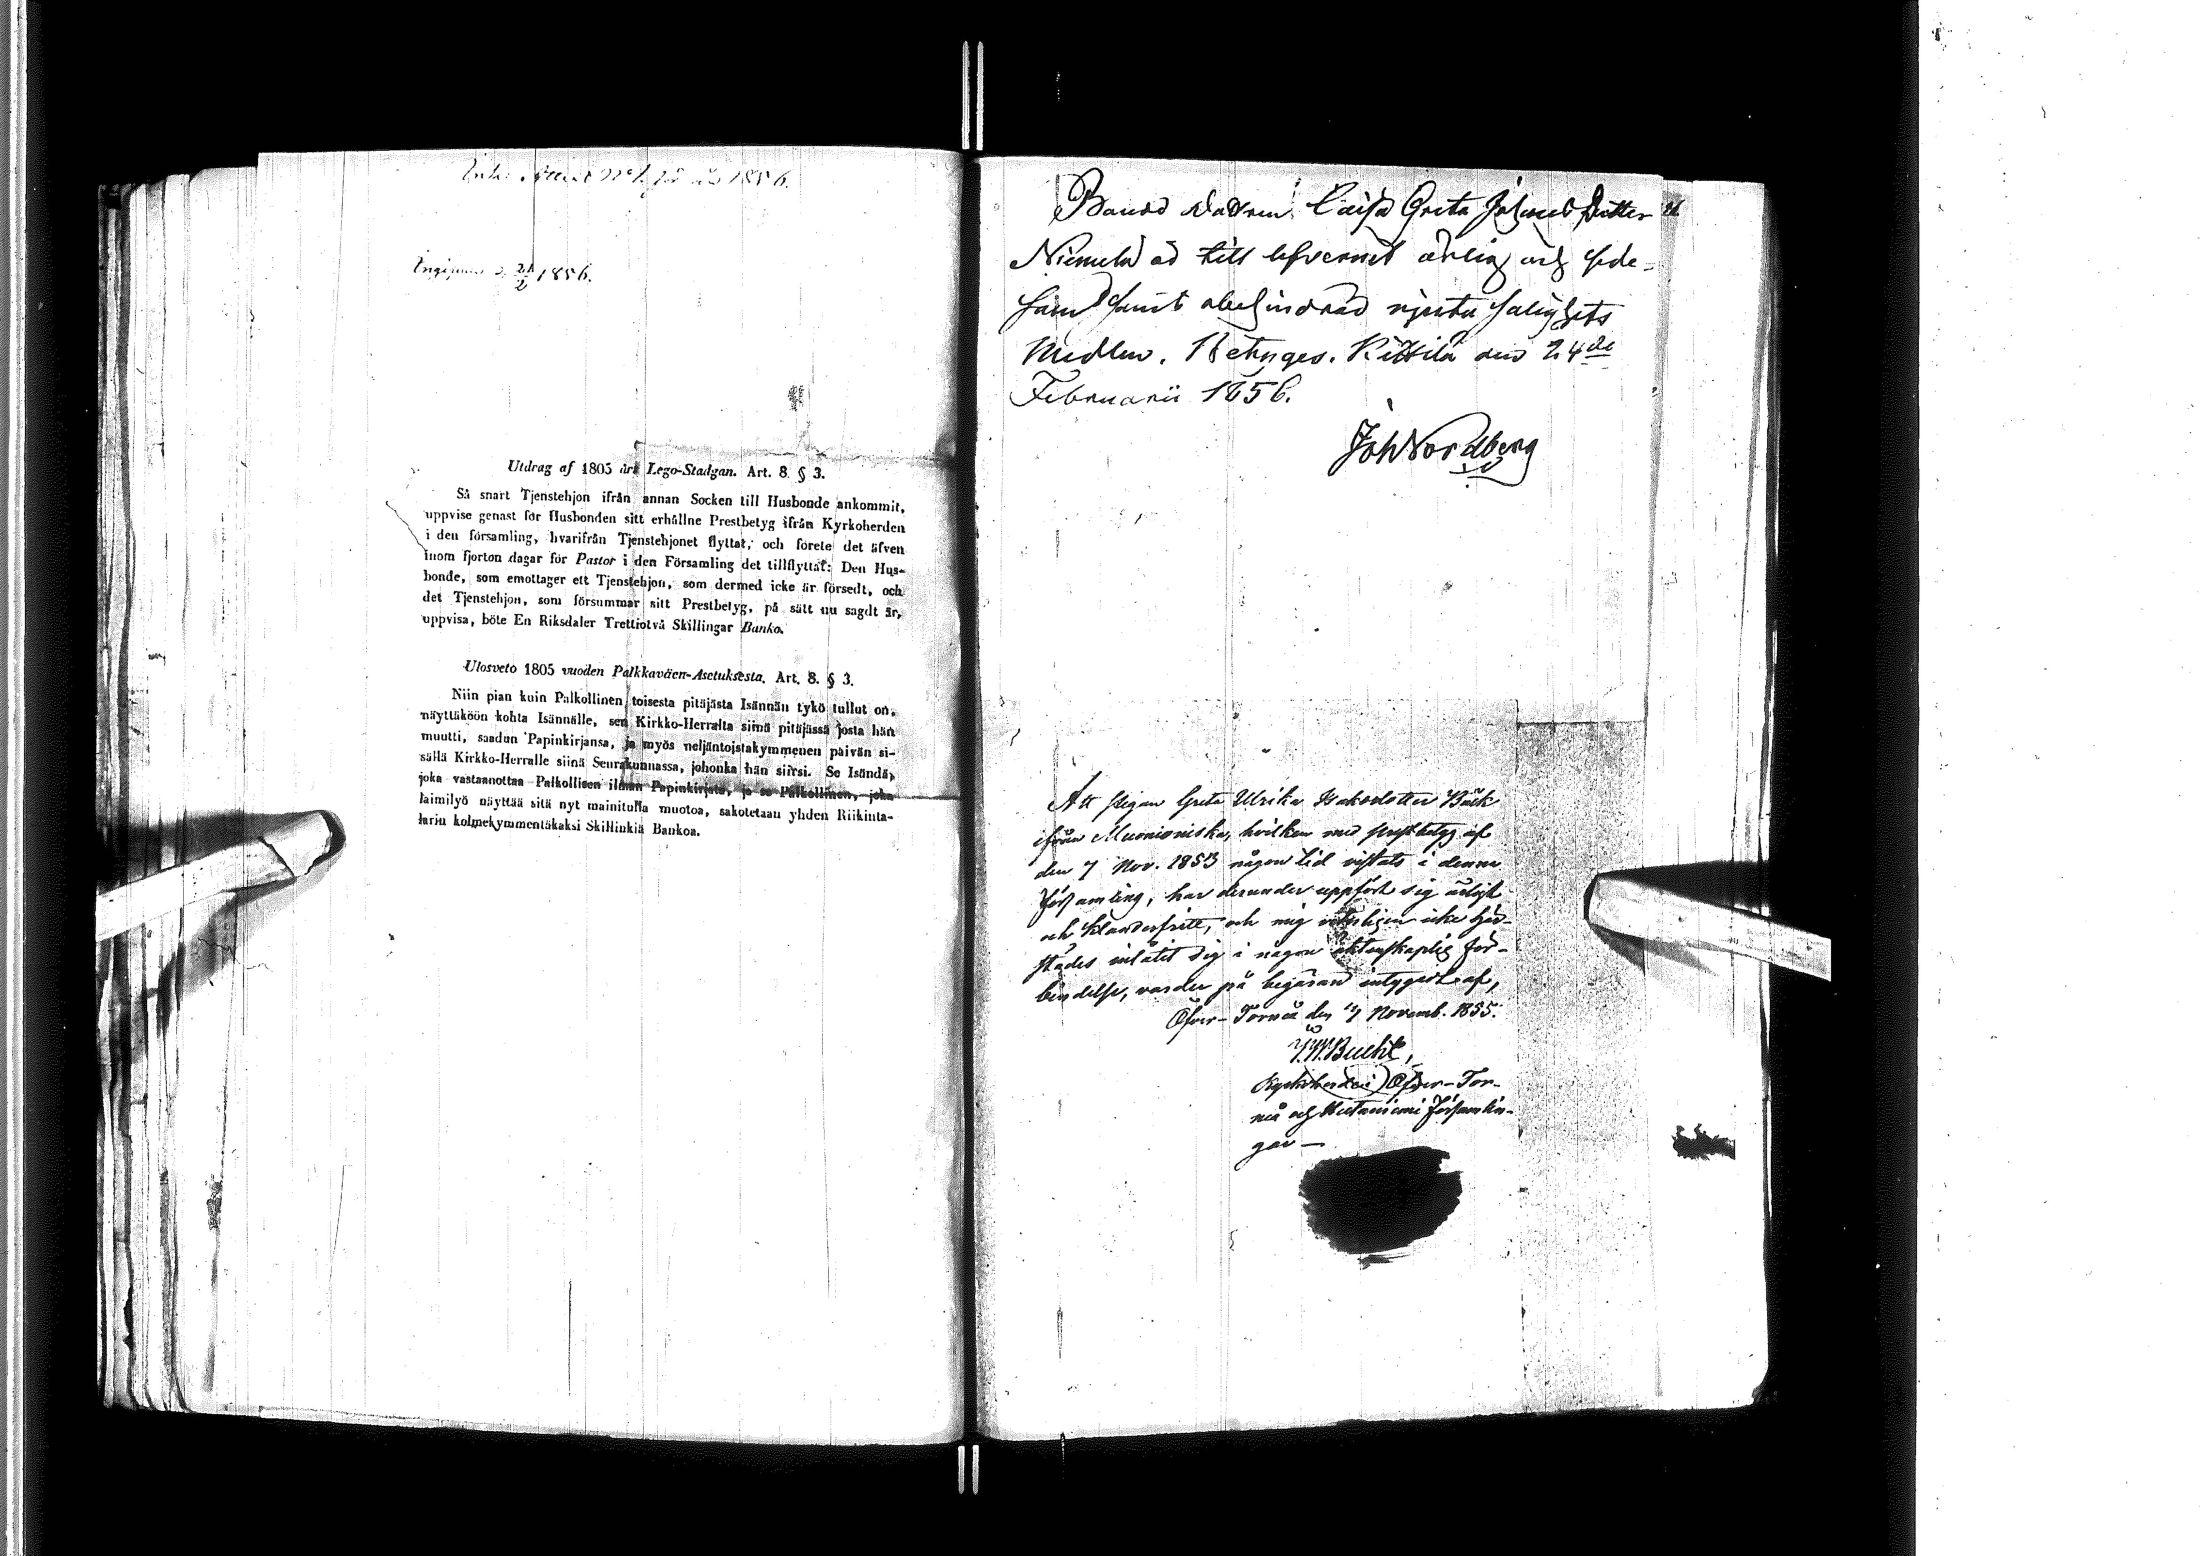 1856.
1856.
Utdrag af 1805 års Lego-Stadgan. Art. 8 § 3.
Så snart Tjenstehjon ifrån annan Socken till Husbonde ankommit,
uppvise genast för Husbonden sitt erhållne Prestbetyg ifrån Kyrkoherden
i den församling, hvarifrån Tjenstehjonet flyttat, och förete det äfven
inom fjorton dagar för Pastor i den Församling det tillflyttat: Den Hus-
bonde, som emottager ett Tjenstehjon, som dermed icke är försedt, och
det Tjenstehjon, som försummar sitt Prestbetyg, på sätt nu sagdt är,
uppvisa, böte En Riksdaler Trettiotvå Skillingar Banko.
Ulosveto 1805 vuoden Palkkaväen-Asetuksesta. Art. 8. § 3.
Niin pian kuin Palkollinen toisesta pitäjästa Isännän tykö tullut on,
näyttäköön kohta Isännälle, sen Kirkko-Herralta siinä pitäjässä josta hän
muutti, saadun Papinkirjansa, ja myös neljäntoistakymmenen päivän si-
sällä Kirkko-Herralle siinä Seurakunnassa, johonka hän siirsi. Se Isändä,
joka vastaanottaa Palkollisen ilman Papinkirjata, ja se Palkollinen, joka
laimilyö näyttää sitä nyt mainitulla muotoa, sakotetaan yhden Riikinta-
larin kolmekymmentäkaksi Skillinkiä Bankoa.
Bonde Dottren Caisa Greta Johans Dotter
Niemelä är till lefvernet ärlig och sede-
sam samt obehindrad njuta salighets
Medlen. Betyges. Kittilä den 24de
Februarii 1856.
Joh Nordberg
Att pigan Greta Ulrika Isaksdotter Bäck
ifrån Muonioniska, hvilken med prestbetyg af
den 7 Nov. 1853 någon tid vistats i denna
församling, har derunder uppfört sig ärligt
och klanderfritt, och mig veterligen icke här-
städes inlåtit sig i någon äktenskaplig för-
bindelse, varder på begäran intygadt af,
Öfver-Torneå den 7 Novemb. 1855.
Bucht,
Kyrkoherde i Öfver-Tor-
neå och Hietaniemi församlin-
gar —